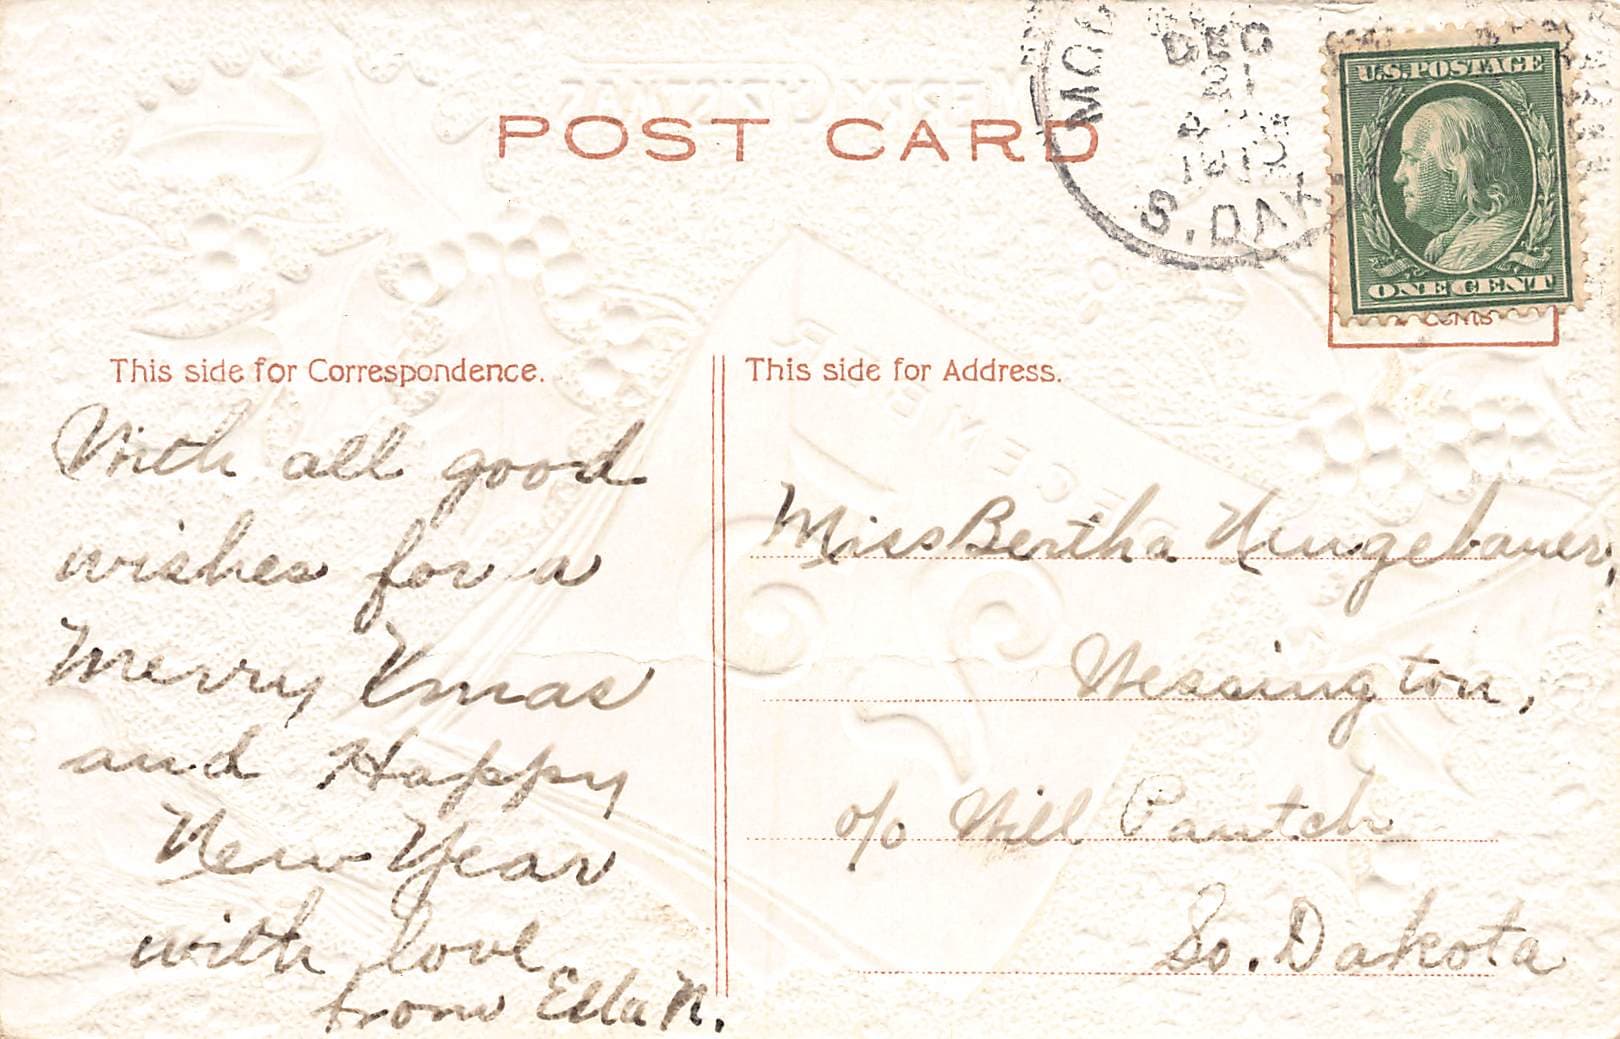 POST CARD
DEC
21
1910
S. DAK
U.S. POSTAGE
ONE CENT
This side for Correspondence.
With all good
wishes for a
Merry Xmas
and Happy
New Year
with love
from Ella N.
This side for Address.
Miss Bertha Neugebauer,
Wessington,
c/o Will Pautch
So. Dakota
MERRY CHRISTMAS
DECEMBER